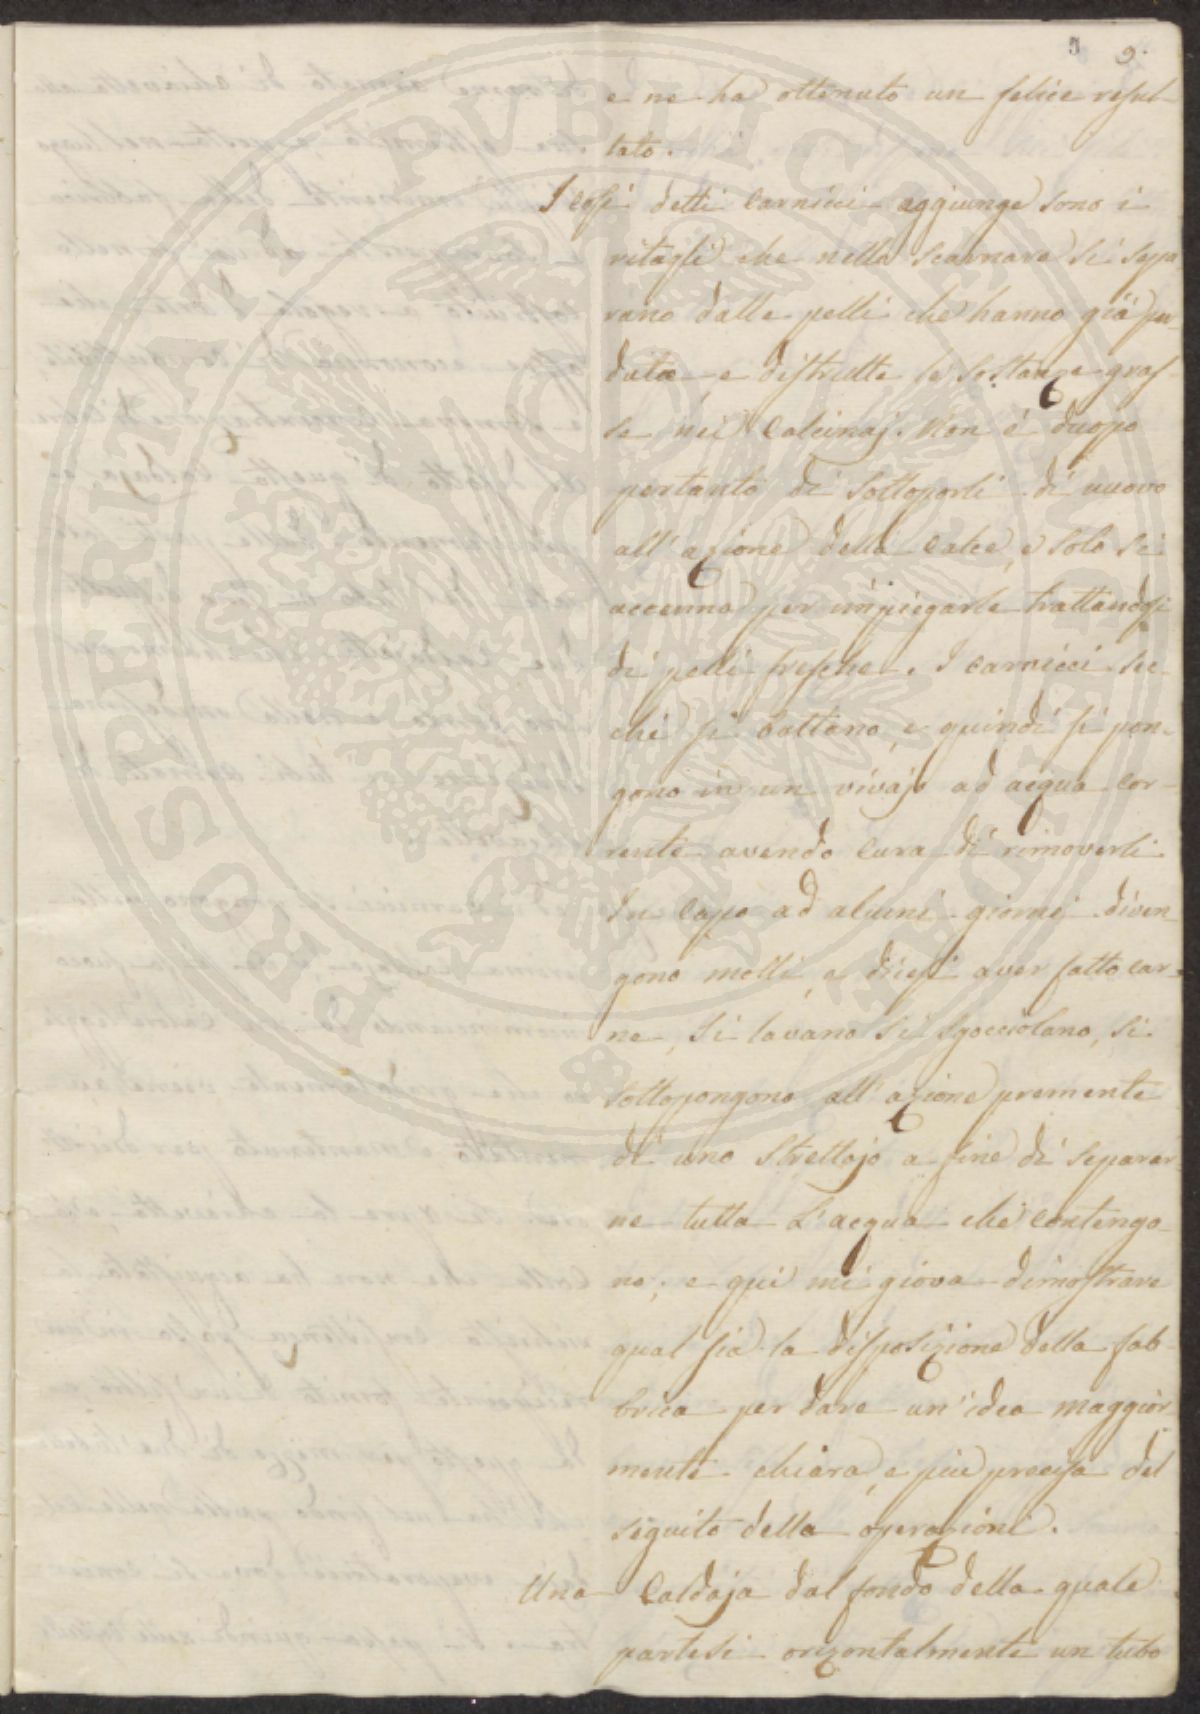 9.
e ne ha ottenuto un felice resul-
tato.
I così detti Carnicci aggiunge sono i
ritagli che nella Scarnare si sepa
rano dalle pelli che hanno già per
dute e distrutte le Sostanze gras-
se nei Calcinaj. Non è duopo
pertanto di Sottoporli di nuovo
all'azione della Calce, e solo si
accenna per impiegarle trattandosi
di pelli fresche. I Carnicci sec-
chi si battano, e quindi si pon-
gono in un vivajo ad acqua Cor-
rente avendo Cura di rimoverli
In Capo ad alcuni giorni diven
gono molli, e dicesi aver fatto Car-
ne, si lavano si sgocciolano, si
Sottopongono all'azione premente
di uno Strettojo a fine di separar
ne tutta L'acqua che Contengo
no; e qui mi giova dimostrare
qual sia la disposizione della fab-
brica per dare un'idea maggior
mente chiara, e più precisa del
seguito della operazioni.
Una Caldaja dal fondo della quale
partesi orizontalmente un tubo
PROSPERITATI PUBLICAE AUGENDAE